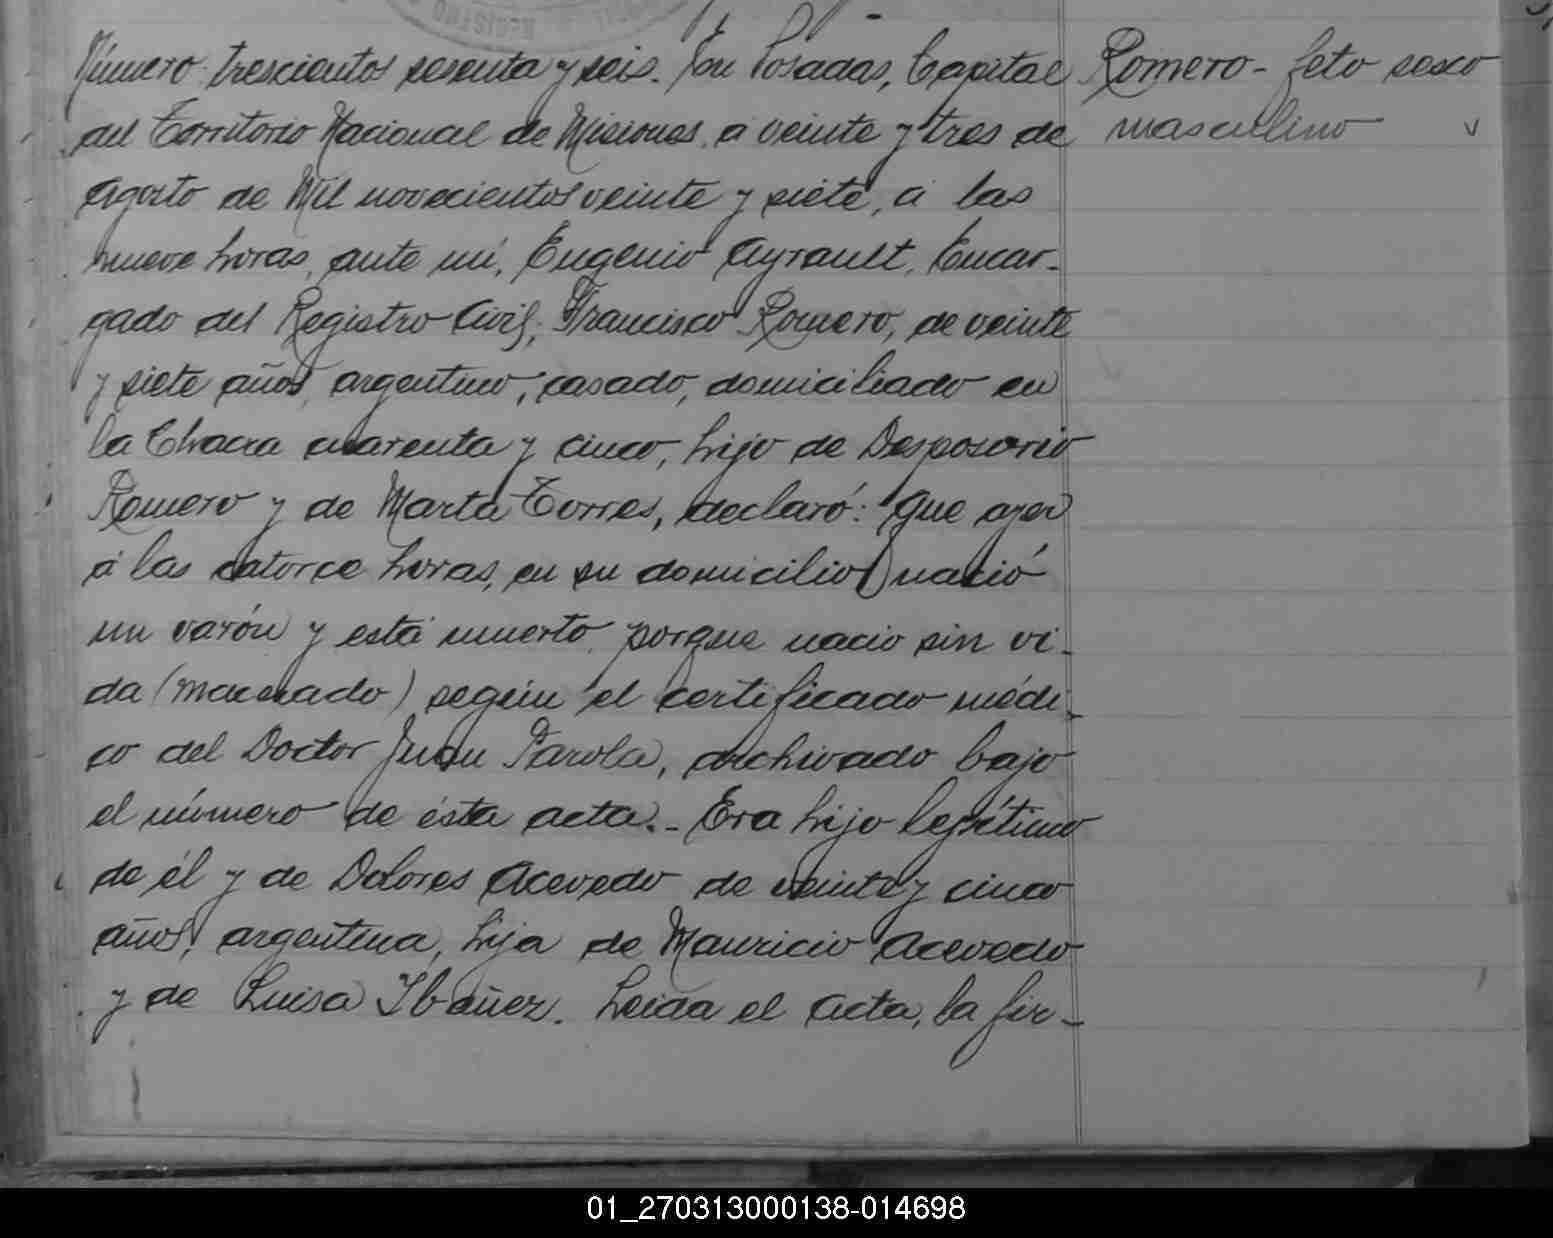 REGISTRO
Número trescientos sesenta y seis. En Posadas, Capital
del Territorio Nacional de Misiones, á veinte y tres de
Agosto de Mil novecientos veinte y siete, á las
nueve horas, ante mí, Eugenio Ayrault, Encar-
gado del Registro Civil, Francisco Romero, de veinte
y siete años, argentino, casado, domiciliado en
la Chacra cuarenta y cinco, hijo de Desposorio
Romero y de Marta Torres, declaró: Que ayer
á las catorce horas, en su domicilio nació
un varón y está muerto porque nacio sin vi-
da (macerado) según el certificado médi-
co del Doctor Juan Parola, archivado bajo
el número de ésta acta.- Era hijo legítimo
de él y de Dolores Acevedo de veinte y cinco
años, argentina, hija de Mauricio Acevedo
y de Luisa Ibáñez. Leida el acta, la fir-
Romero - feto sexo
masculino
01_270313000138-014698